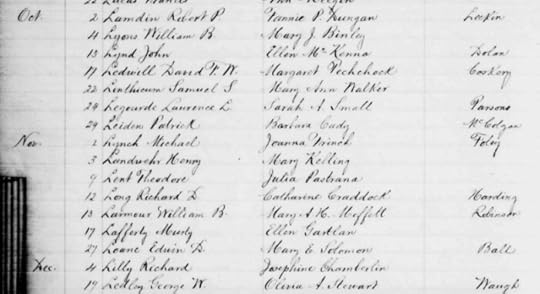 22 Lucas Francis Ann Keegan
Oct. 2 Lamdin Robert P. Fannie P. Dungan Leckin
4 Lyons William B Mary J. Binley
13 Lynd John Ellen McKenna Dolan
17 Ledwill David F. W. Margaret Pechchock Corkery
22 Linthicum Samuel S. Mary Ann Walker
24 Legourde Laurence L. Sarah A. Small Parsons
29 Leiden Patrick Barbara Cady McColgan
Nov. 2 Lynch Michael Joanna Frinck Foley
3 Landwehr Henry Mary Kelling
9 Lent Theodore Julia Pastrana
12 Long Richard D. Catharine Craddock Harding
13 Larmour William B. Mary A. H. Moffett Robinson
17 Lafferty Murty Ellen Gartlan
27 Loane Edwin D. Mary E Solomon Ball
Dec. 4 Lilly Richard Josephine Chamberlin
19 Ledley George W. Olivia A Stewart Waugh